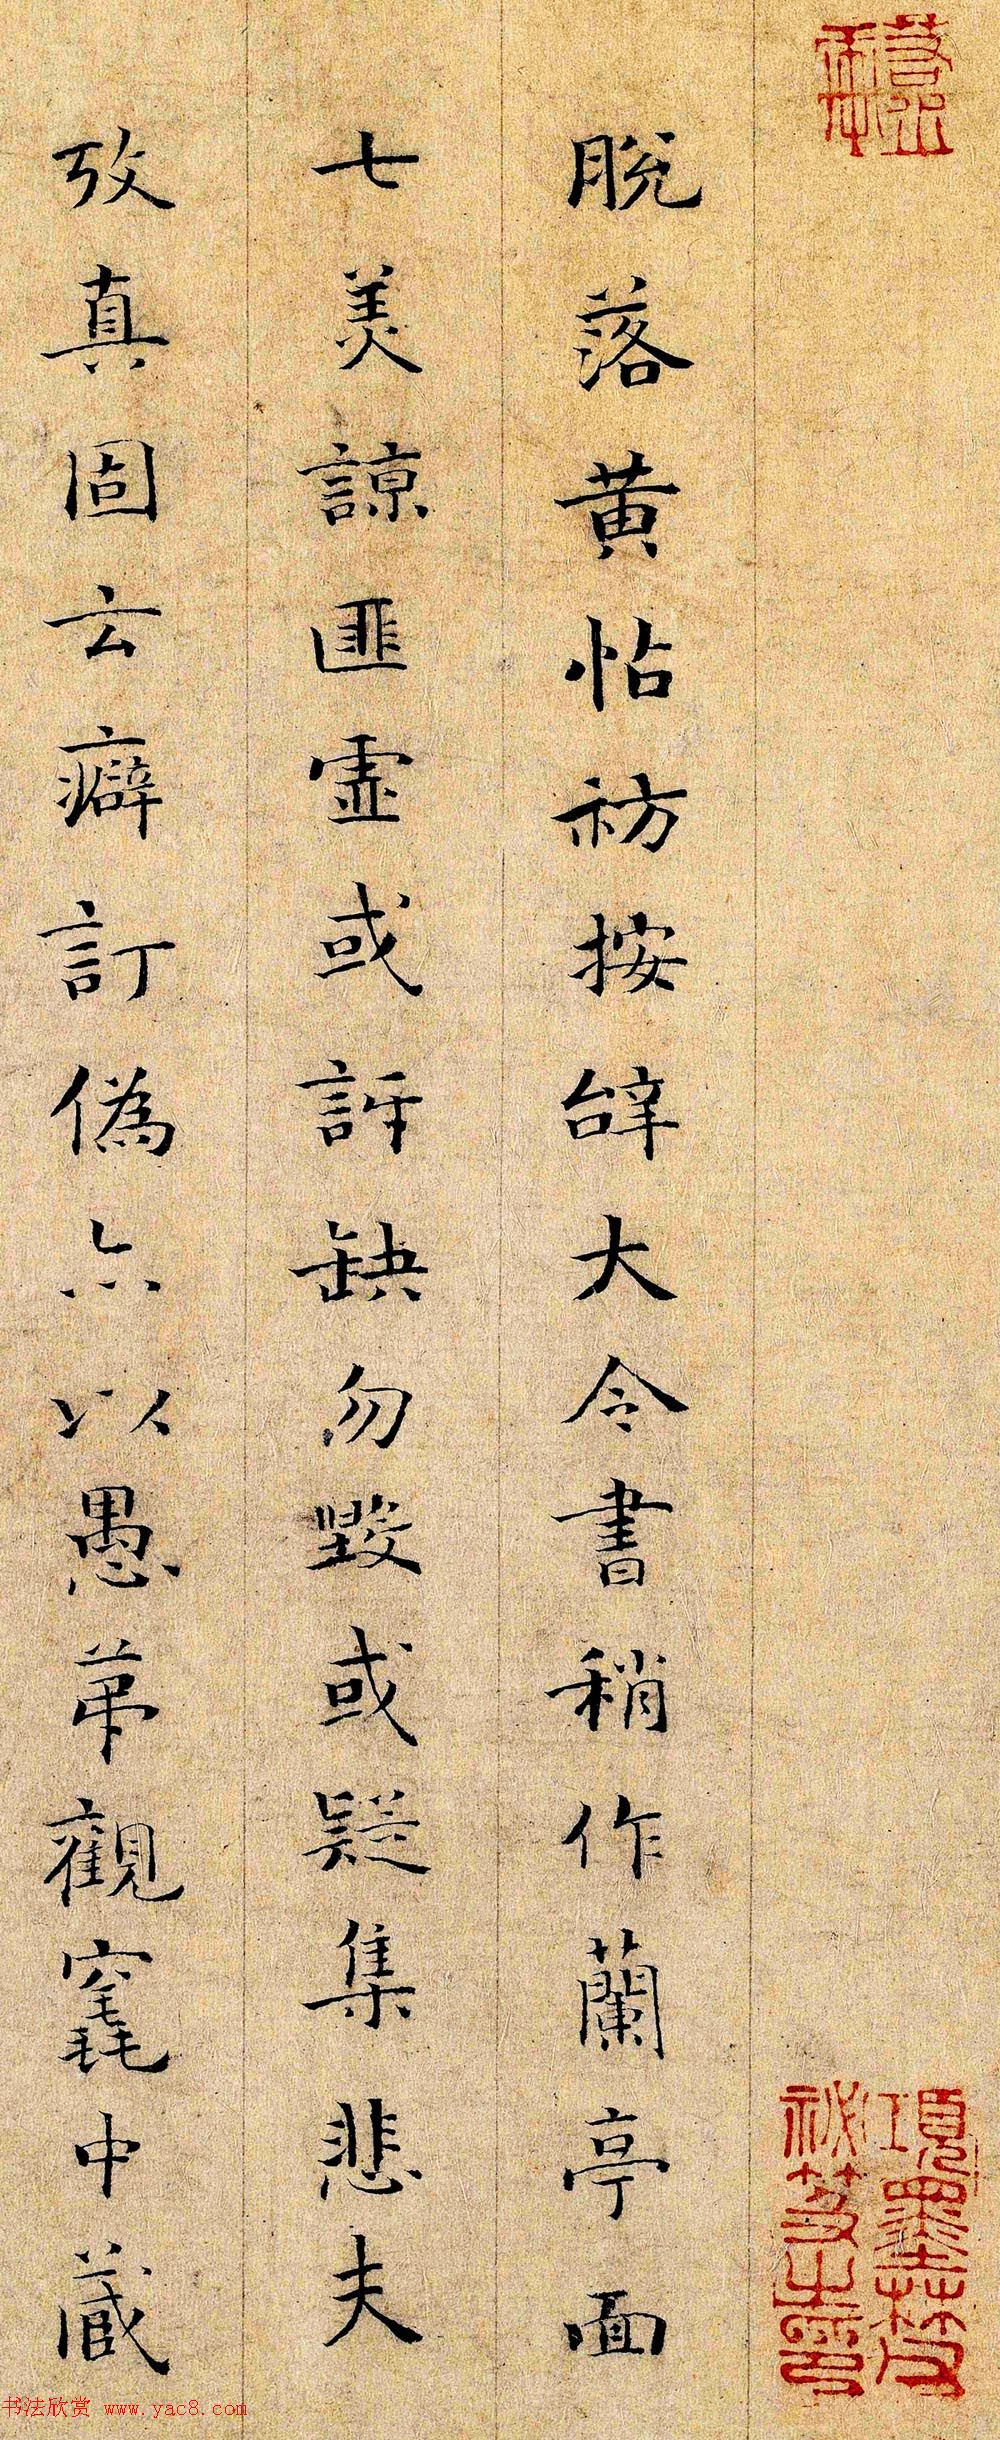 脫落黄帖祊按辝大令書稍作蘭亭面
七美諒匪虛或訝缺勿毀或疑集悲夫
攷真固云癖訂偽亦以愚苐觀窀中藏
項墨林父
秘笈之印
书法欣赏 www.yac8.com